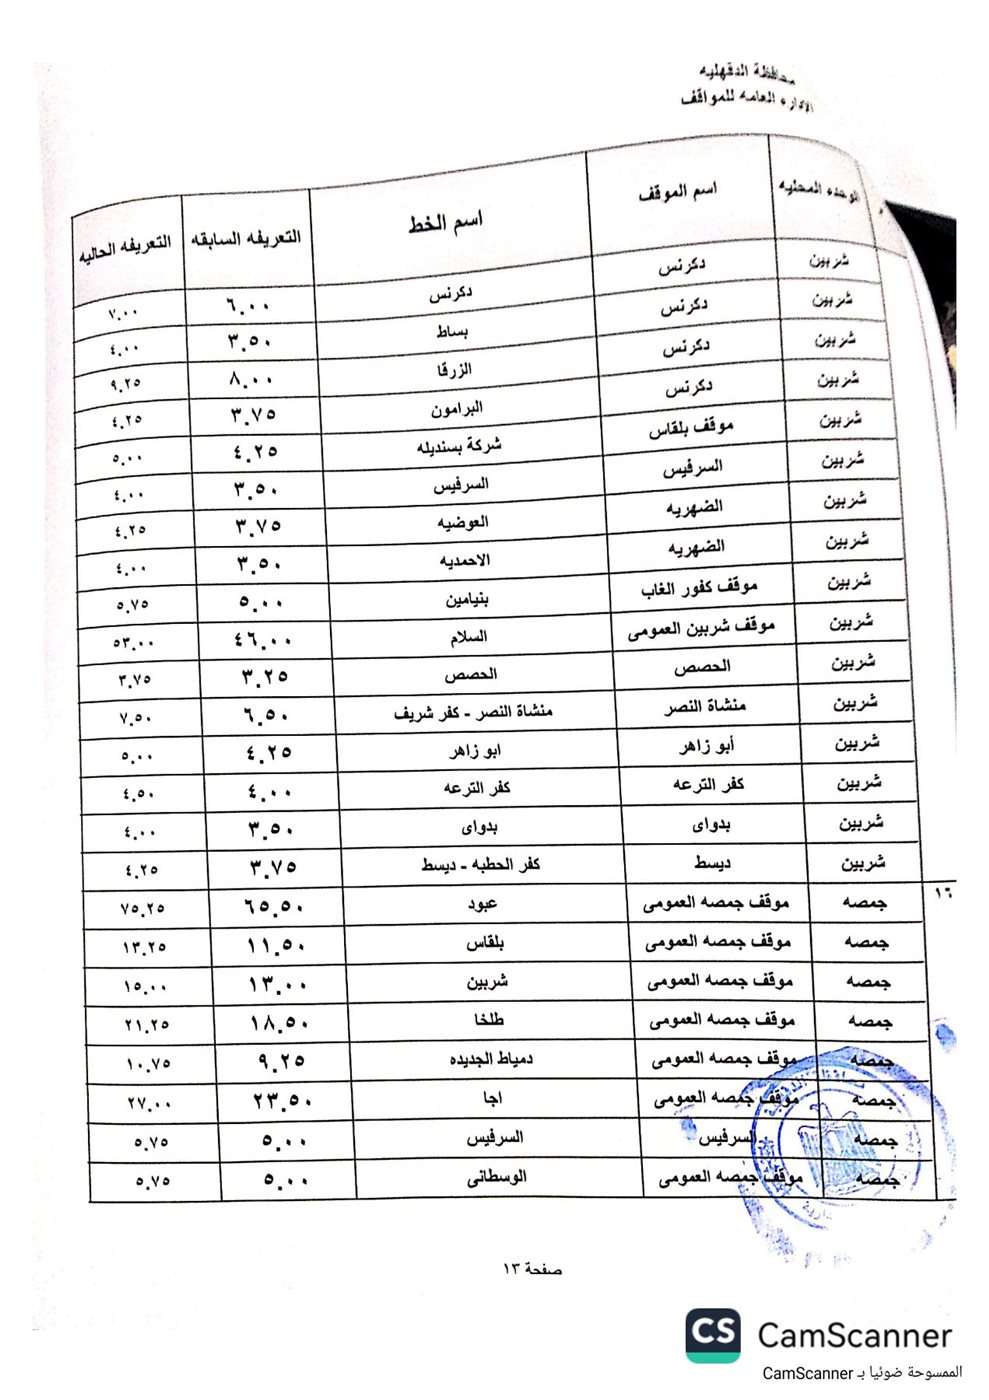 محافظة الدقهليه
الاداره العامه للمواقف
الوحده المحليه اسم الموقف اسم الخط التعريفه السابقه التعريفه الحاليه
شربين دكرنس دكرنس ٦.٠٠ ٧.٠٠
شربين دكرنس بساط ٣.٥٠ ٤.٠٠
شربين دكرنس الزرقا ٨.٠٠ ٩.٢٥
شربين دكرنس البرامون ٣.٧٥ ٤.٢٥
شربين موقف بلقاس شركة بسنديله ٤.٢٥ ٥.٠٠
شربين السرفيس السرفيس ٣.٥٠ ٤.٠٠
شربين الضهريه العوضيه ٣.٧٥ ٤.٢٥
شربين الضهريه الاحمديه ٣.٥٠ ٤.٠٠
شربين موقف كفور الغاب بنيامين ٥.٠٠ ٥.٧٥
شربين موقف شربين العمومى السلام ٤٦.٠٠ ٥٣.٠٠
شربين الحصص الحصص ٣.٢٥ ٣.٧٥
شربين منشاة النصر منشاة النصر - كفر شريف ٦.٥٠ ٧.٥٠
شربين أبو زاهر ابو زاهر ٤.٢٥ ٥.٠٠
شربين كفر الترعه كفر الترعه ٤.٠٠ ٤.٥٠
شربين بدواى بدواى ٣.٥٠ ٤.٠٠
شربين ديسط كفر الحطبه - ديسط ٣.٧٥ ٤.٢٥
١٦ جمصه موقف جمصه العمومى عبود ٦٥.٥٠ ٧٥.٢٥
جمصه موقف جمصه العمومى بلقاس ١١.٥٠ ١٣.٢٥
جمصه موقف جمصه العمومى شربين ١٣.٠٠ ١٥.٠٠
جمصه موقف جمصه العمومى طلخا ١٨.٥٠ ٢١.٢٥
جمصه موقف جمصه العمومى دمياط الجديده ٩.٢٥ ١٠.٧٥
جمصه موقف جمصه العمومى اجا ٢٣.٥٠ ٢٧.٠٠
جمصه السرفيس السرفيس ٥.٠٠ ٥.٧٥
جمصه موقف جمصه العمومى الوسطانى ٥.٠٠ ٥.٧٥
صفحة ١٣
CS CamScanner
الممسوحة ضوئيا بـ CamScanner